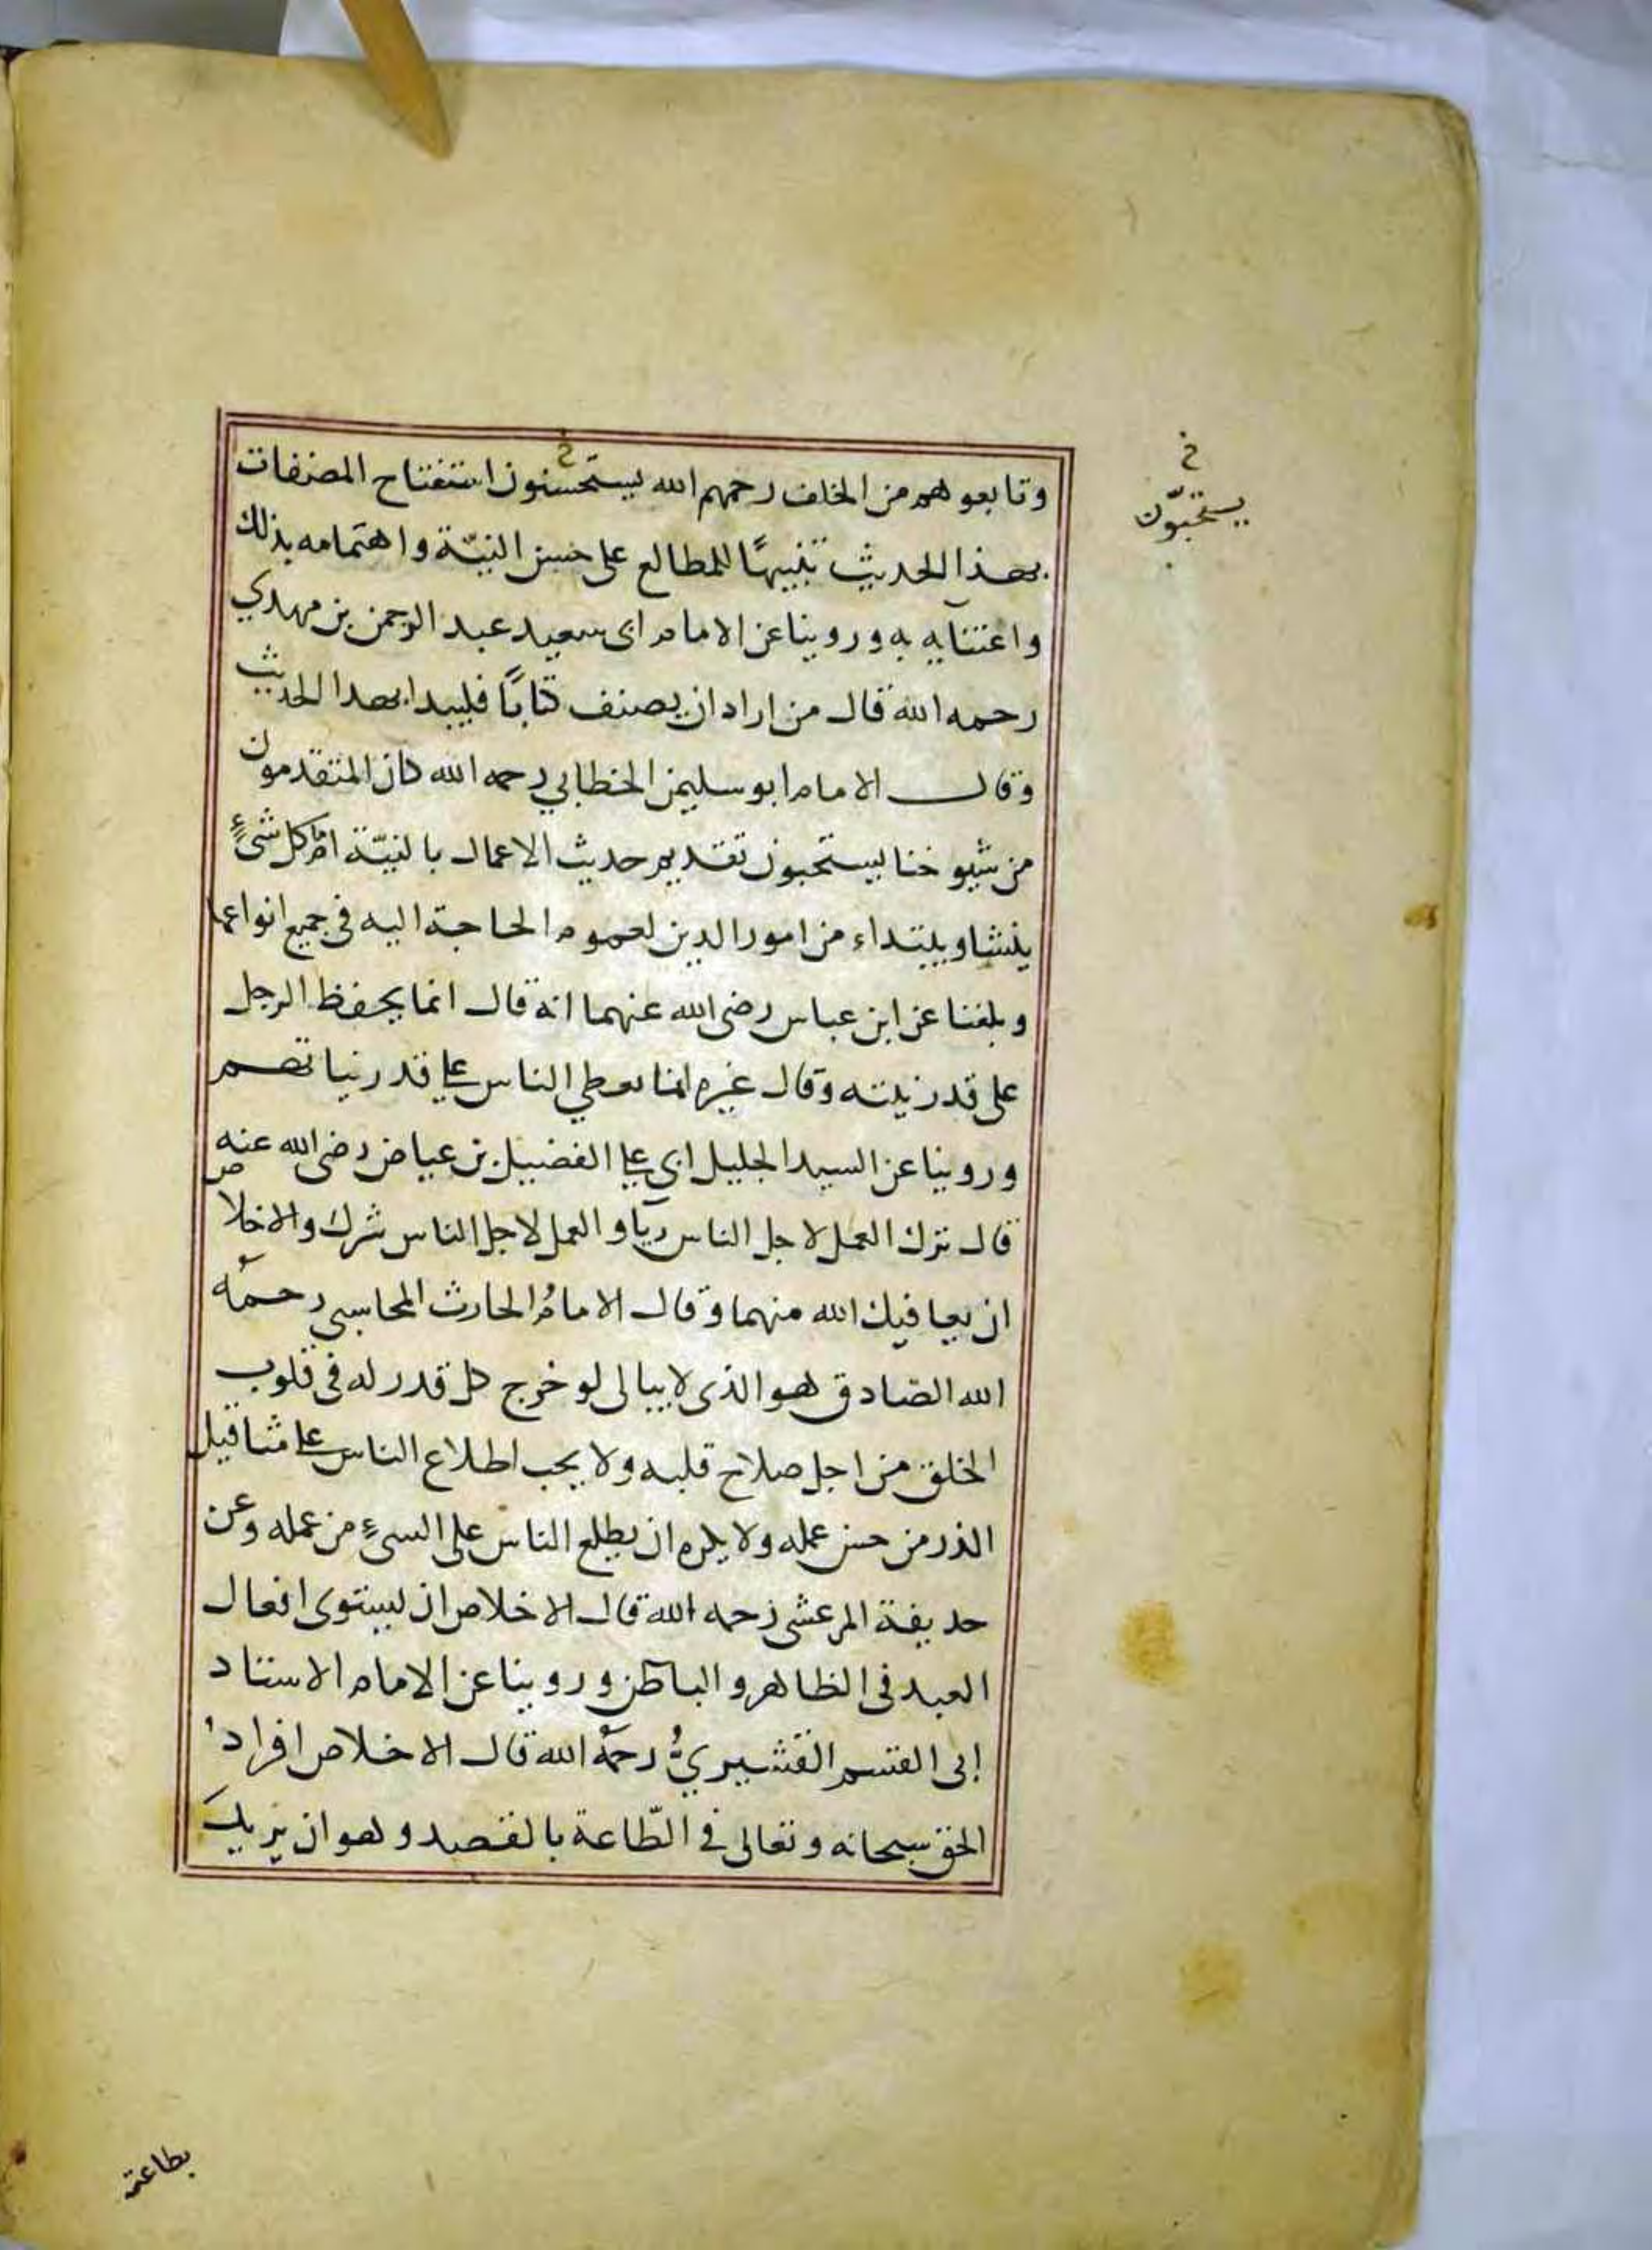 خ
يستحبّون
وتابعوهم من الخلف رحمهم الله يستحسنون استفتاح المصنفات
بهذا الحديث تنبيهًا للمطالع على حسن النيّة واهتمامه بذلك
واعتنآيه به وروينا عن الامام ابى سعيد عبد الرحمن بن مهدي
رحمه الله قال من اراد ان يصنف كتابًا فليبدا بهذا الحديث
وقال الامام ابو سليمن الخطابي رحمه الله كان المتقدمون
من شيوخنا يستحبون تقديم حديث الاعمال بالنيّة امام كل شىءٍ
ينشا ويبتداء من امور الدين لعموم الحاجة اليه فى جميع انواعها
وبلغنا عن ابن عباس رضى الله عنهما انه قال انما يحفظ الرجل
على قدر نيته وقال غيره انما يعطي الناس على قدر نياتهم
وروينا عن السيد الجليل ابى على الفضيل بن عياض رضى الله عنه
قال ترك العمل لاجل الناس ريآ والعمل لاجل الناس شرك والاخلاص
ان يعافيك الله منهما وقال الامامُ الحارث المحاسبي رحمهُ
الله الصّادق هو الذى لا يبالى لو خرج كل قدر له فى قلوب
الخلق من اجل صلاح قلبه ولا يحب اطلاع الناس على مثاقيل
الذر من حسن عمله ولا يكره ان يطلع الناس على السىءِ من عمله وعن
حديفة المرعشى رحمه الله قال الاخلاص ان ليستوى افعال
العبد فى الظاهر والباطن وروينا عن الامام الاستاد
إلى القسم القشيريُّ رحمهُ الله قال الاخلاص افراد
الحق سبحانه وتعالى فى الطّاعة بالقصد وهو ان يريدَ
بطاعته